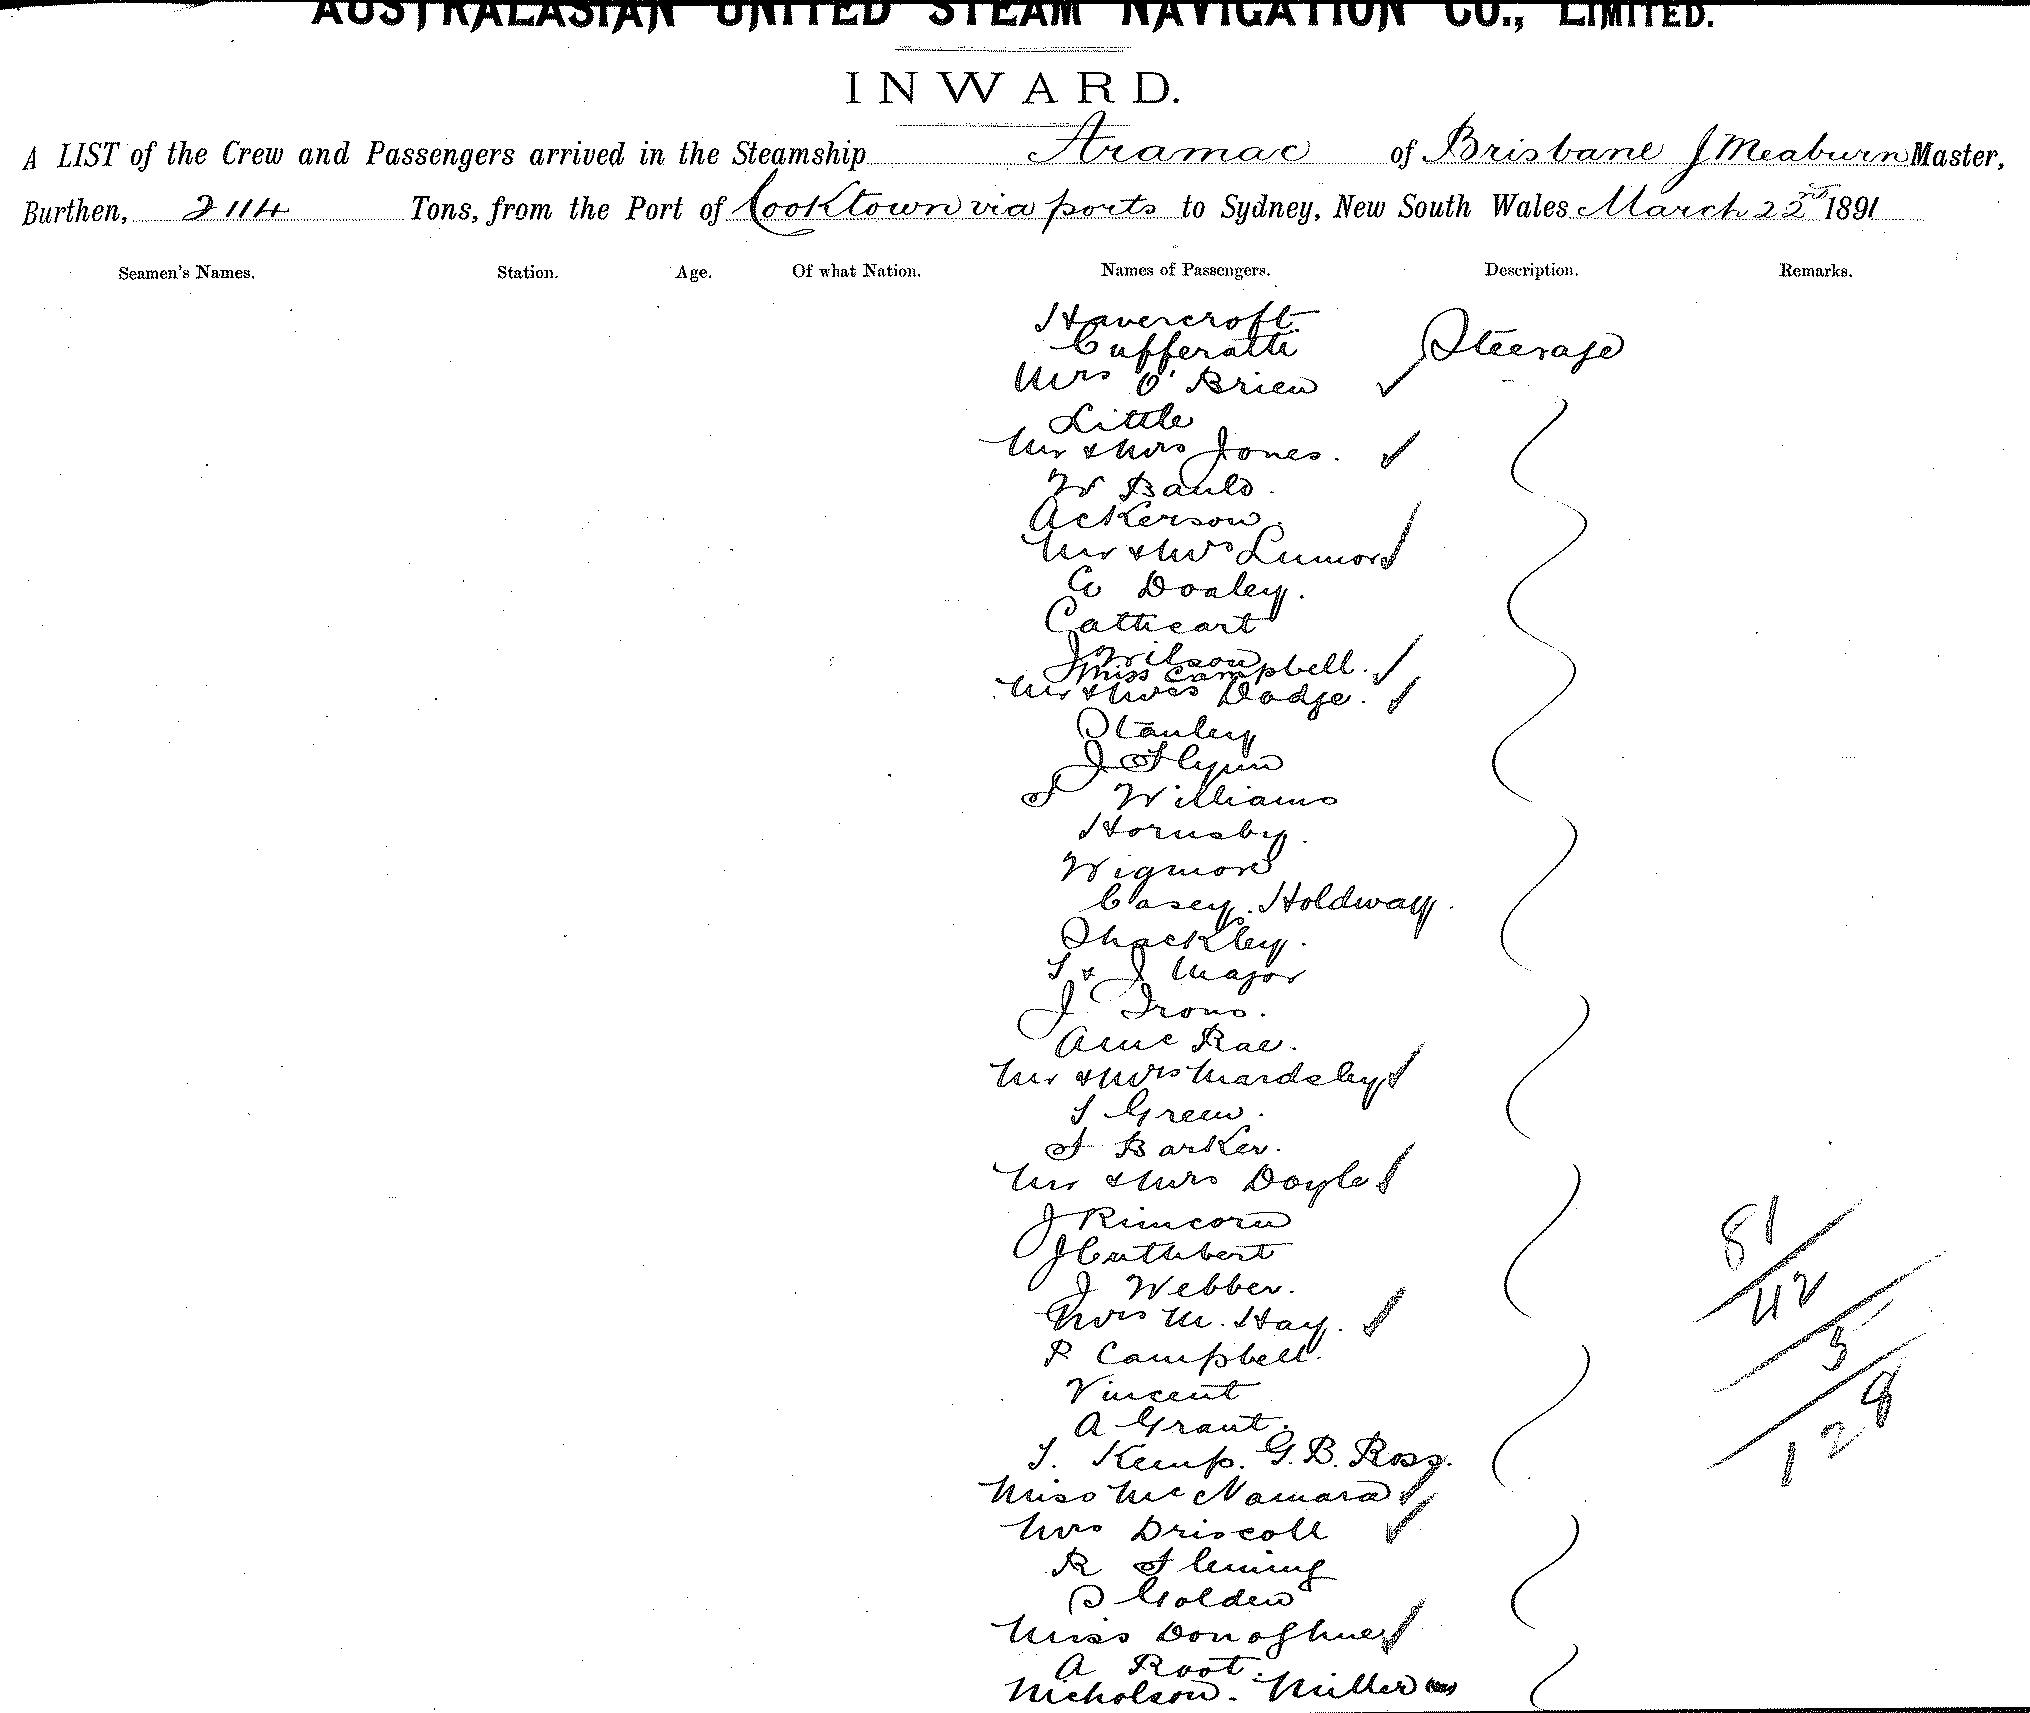 AUSTRALASIAN UNITED STEAM NAVIGATION CO., LIMITED.
INWARD.
A LIST of the Crew and Passengers arrived in the Steamship Aramac of Brisbane J Meaburn Master,
Burthen, 2114 Tons, from the Port of Cooktown via ports to Sydney, New South Wales March 22nd 1891
Seamen's Names. Station. Age. Of what Nation. Names of Passengers. Description. Remarks.
Havercroft. Steerage
Cufferatti
Mrs O'Brien
Little
Mr & Mrs Jones.
W Bauld.
Ackerson.
Mr & Mrs
E Dooley.
Cathcart
J Wilson
Miss Campbell.
Mr & Mrs Dodge.
Stanley
J Flynn
F Williams
Hornsby.
Wigmore
Casey. Holdway.
Shackley.
T & J Major
J Irons.
A McRae.
Mr & Mrs Mardsley
T Green.
F Barker.
Mr & Mrs Doyle
J Rimcorn
J Cuthbert
J Webber.
Mrs M. Hay.
P Campbell.
Vincent
A Grant.
T. Kemp. G. B. Ross.
Miss McNamara
Mrs Driscoll
R Fleming
S Golden
Miss Donoghue
A Root.
Nicholson. Miller
81
42
5
128